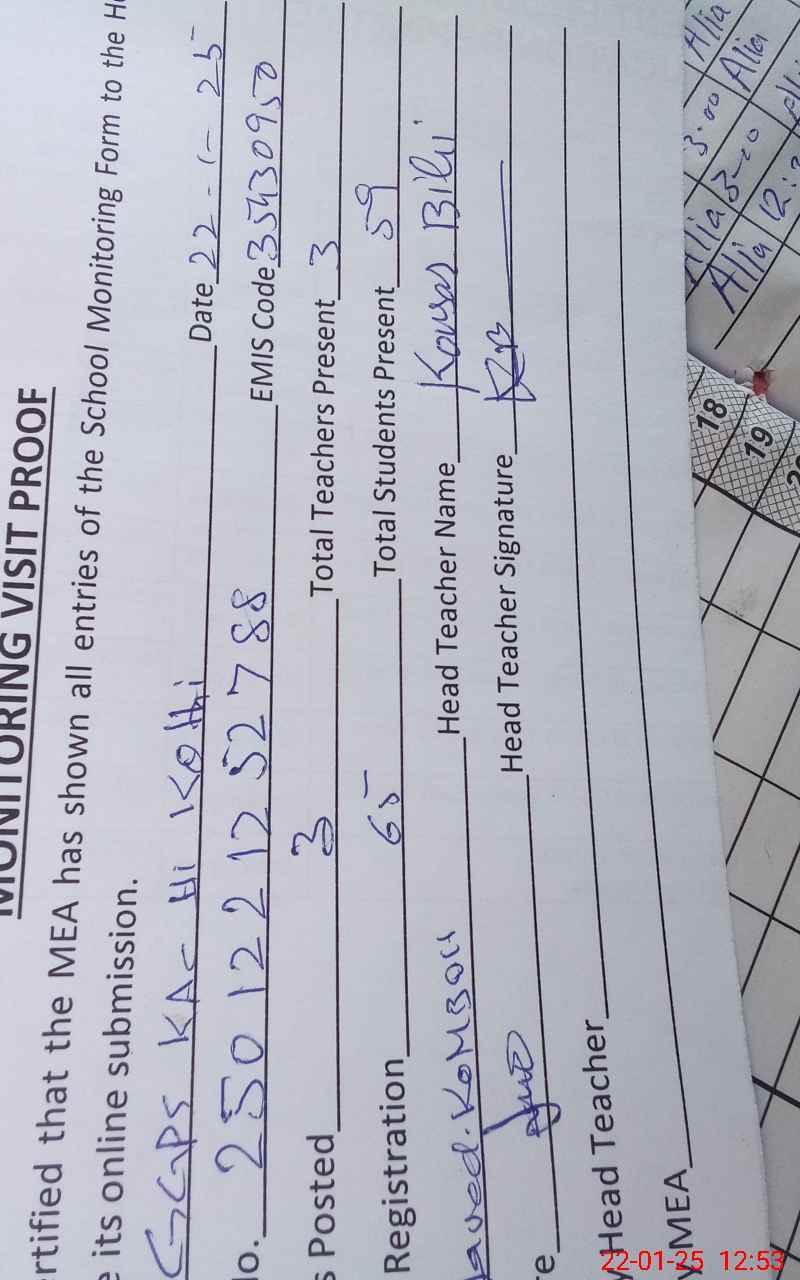 MONITORING VISIT PROOF
rtified that the MEA has shown all entries of the School Monitoring Form to the He
e its online submission.
GGPS KAC Hi KOTHI Date 22-1-25
lo. 250122125252788 EMIS Code 35430950
s Posted 3 Total Teachers Present 3
Registration 65 Total Students Present 59
aved. KOMBOH Head Teacher Name Kousar Bibi
re Head Teacher Signature KB
y Head Teacher
y MEA
Alia 3.00 Alia
Alia 3-00 Alia
Alia 12:
18
19
22-01-25 12:53